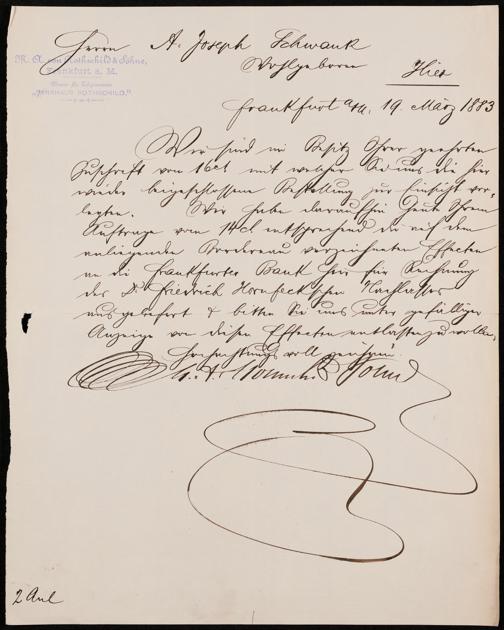 Herrn A. Joseph Schwank
Wohlgeboren
Hier
M. A. von Rothschild & Söhne,
Frankfurt a. M.
Adresse für Telegramme:
„BANKHAUS ROTHSCHILD."
Frankfurt a/M. 19. März 1883
Wir sind im Besitz Ihrer geehrten
Zuschrift von 16ct mit welcher Sie uns die hier
wieder beigeschlossene Bestellung zur Einsicht vor-
legten. Wir haben daraufhin heute Ihrem
Auftrage vom 14ct entsprechend die auf dem
anliegenden Bordereau verzeichneten Effecten
an die Frankfurter Bank hier für Rechnung
des Dr. Friedrich Hornfeck'schen Nachlasses
ausgeliefert & bitten Sie uns unter gefälliger
Anzeige von diesen Effecten entlasten zu wollen.
Hochachtungsvoll
2 Anl